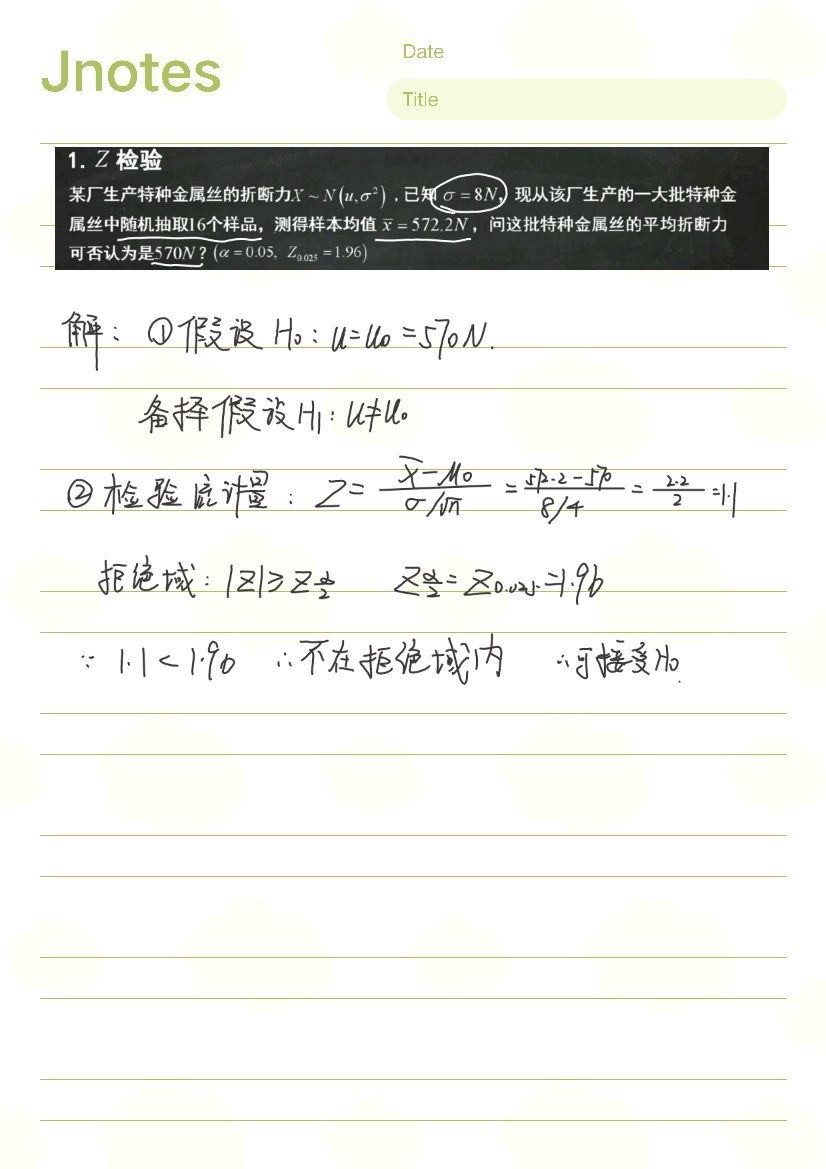 Jnotes
Date
Title
1. Z 检验
某厂生产特种金属丝的折断力X ~ N(u,σ²) , 已知 σ = 8N, 现从该厂生产的一大批特种金
属丝中随机抽取16个样品, 测得样本均值 x̄ = 572.2N , 问这批特种金属丝的平均折断力
可否认为是570N? (α = 0.05, Z₀.₀₂₅ = 1.96)
解: ①假设 H₀: u=u₀=570N.
备择假设H₁: u≠u₀
② 检验统计量: Z= (x̄-μ₀)/(σ/√n) = (572.2-570)/(8/4) = 2.2/2 =1.1
拒绝域: |Z|≥Z_{α/2} Z_{α/2}=Z₀.₀₂₅=1.96
∵ 1.1<1.96 ∴不在拒绝域内 ∴可接受H₀.